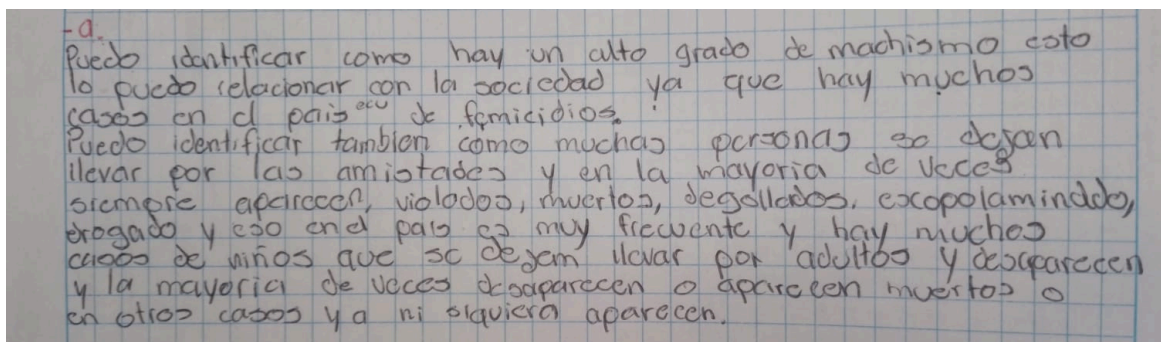 -a.
Puedo identificar como hay un alto grado de machismo esto
lo puedo relacionar con la sociedad ya que hay muchos
casos en el pais ecu de femicidios.
Puedo identificar tambien como muchas personas se dejan
llevar por las amistades y en la mayoria de veces
siempre aparecen, violados, muertos, degollados, escopolaminddo,
drogado y eso end pais es muy frecuente y hay muchos
casos de niños que se dejem llevar por adultos y desaparecen
y la mayoria de veces desaparecen o aparecen muertos o
en otros casos ya ni siquiera aparecen.